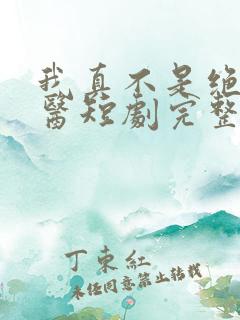 我真不是绝
醫短劇完整
丁東紅
未经同意禁止转载